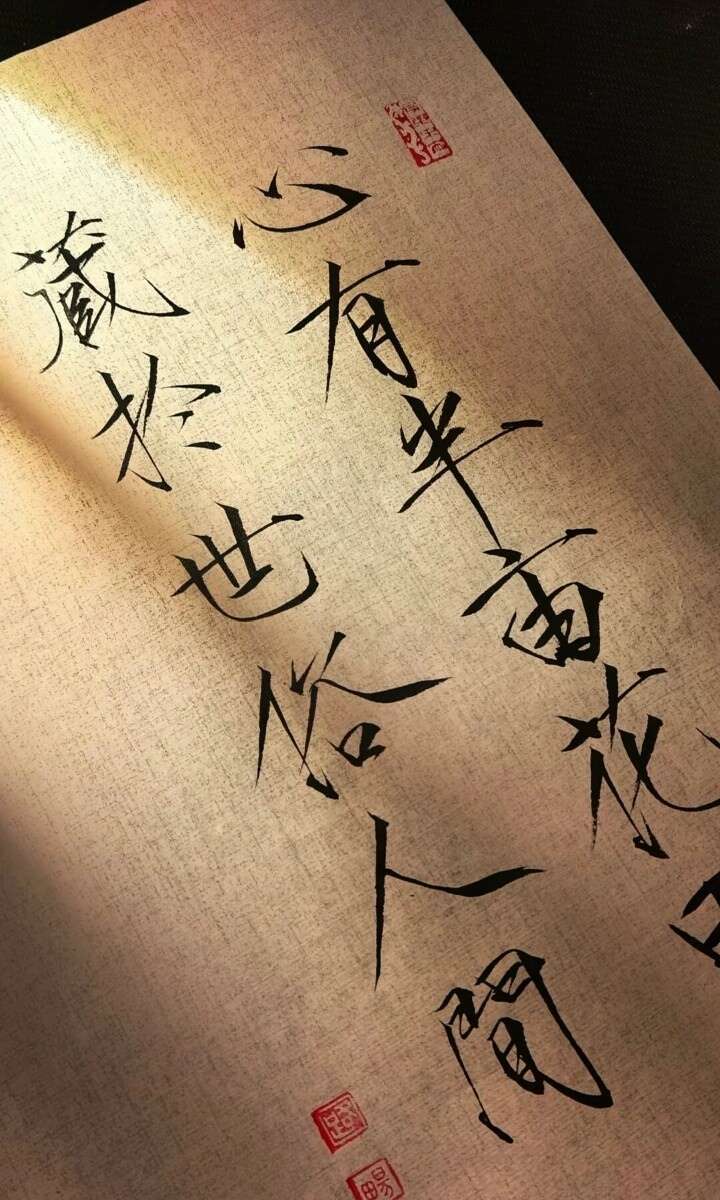 心有半亩花田
藏扵世俗人間